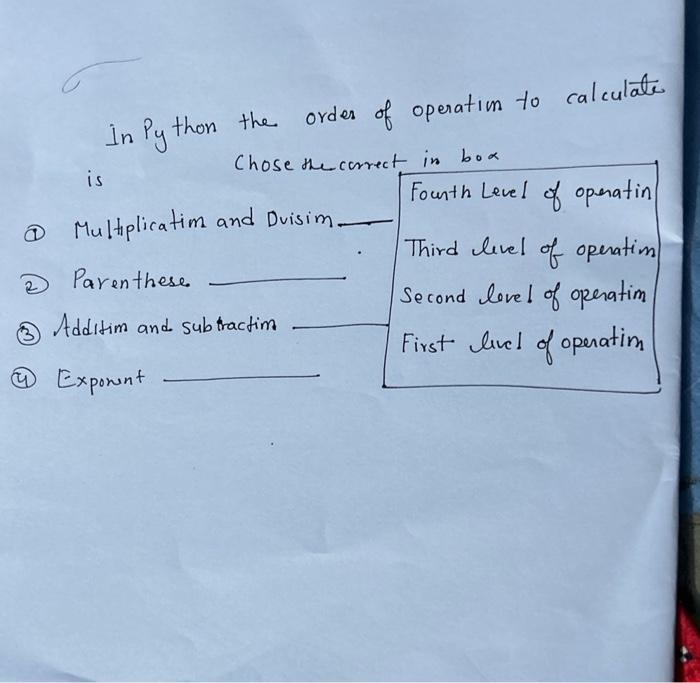 In Python the order of operatim to calculate
is Chose the correct in box
① Multiplicatim and Dvisim
② Parenthese
③ Additim and subtractim
④ Exponent
Fourth Level of operatin
Third level of operatim
Second level of operatim
First level of operatim